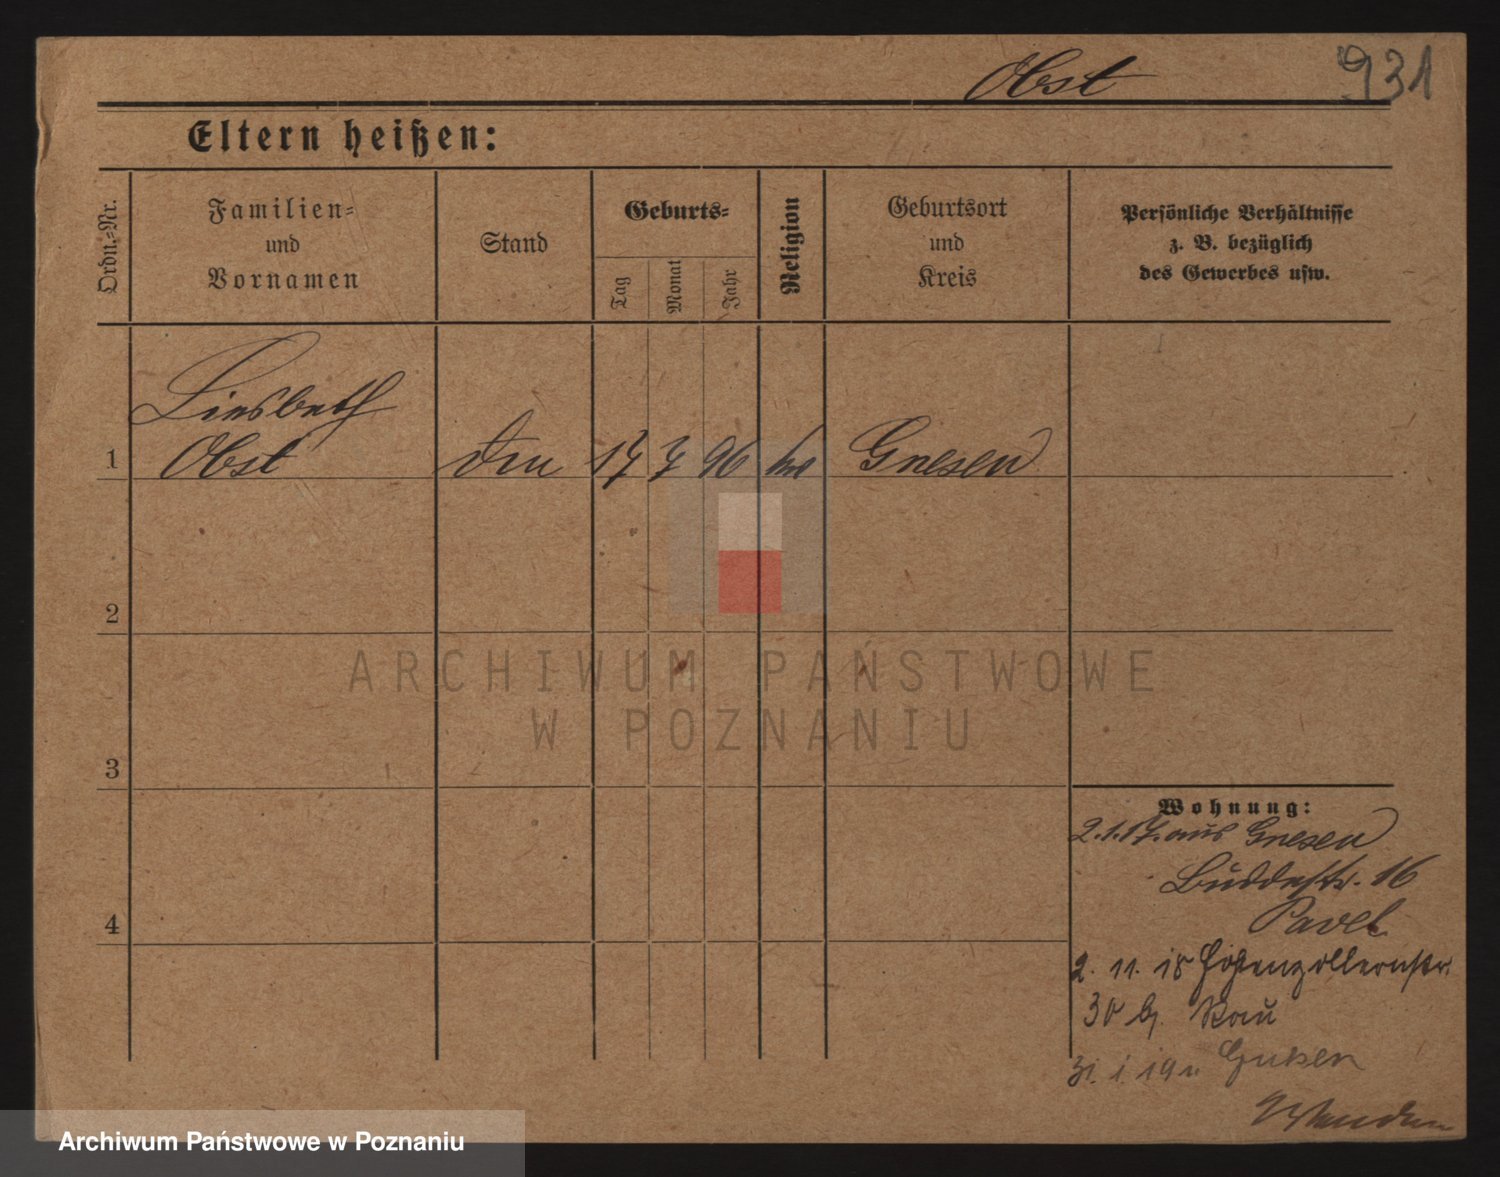 Obst
931
Eltern heißen:
Ordn.-Nr.
Familien-
und
Vornamen
Stand
Geburts-
Tag
Monat
Jahr
Religion
Geburtsort
und
Kreis
Persönliche Verhältnisse
z. B. bezüglich
des Gewerbes usw.
Liesbeth
1 Obst 17 7 96 Gnesen
2
ARCHIWUM PAŃSTWOWE
W POZNANIU
3
Wohnung:
2.1.17. aus Gnesen
Buddestr. 16
4
Pavel
2. 11. 18 Hohenzollernstr.
30 b.
31. 1. 19
Archiwum Państwowe w Poznaniu